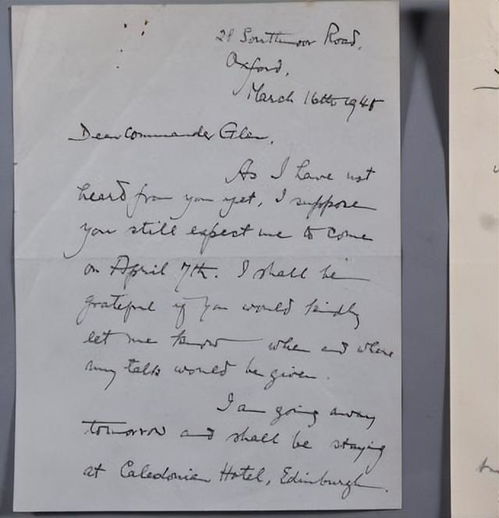 28 Southmoor Road,
Oxford,
March 16th 1945
Dear Commander Glen,
As I have not
heard from you yet, I suppose
you still expect me to come
on April 7th. I shall be
grateful if you would kindly
let me know when and where
my talks would be given.
I am going away
tomorrow and shall be staying
at Caledonian Hotel, Edinburgh.